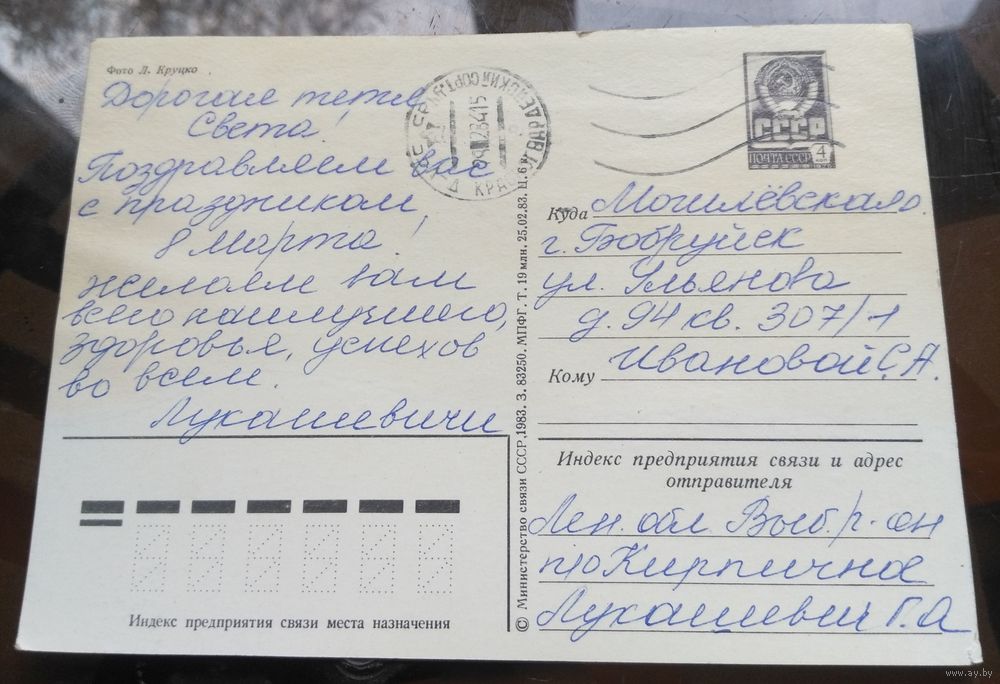 Фото Л. Круцко
Дорогая тетя
Света!
Поздравляем вас
с праздником
8 Марта!
Желаем вам
всего наилучшего,
здоровья, успехов
во всем.
Лукашевичи
Индекс предприятия связи места назначения
© Министерство связи СССР, 1983. З. 83250. МПФГ. Т. 19 млн. 25.02.83. Ц. 6 к.
СССР
ПОЧТА СССР 4
Куда Могилёвская о.
г. Бобруйск
ул. Ульянова
д. 94 кв. 307/1
Кому Ивановой С. А.
Индекс предприятия связи и адрес
отправителя
Лен. обл Выб. р-он
п/о Кирпичное
Лукашевич Г. А
www.ay.by